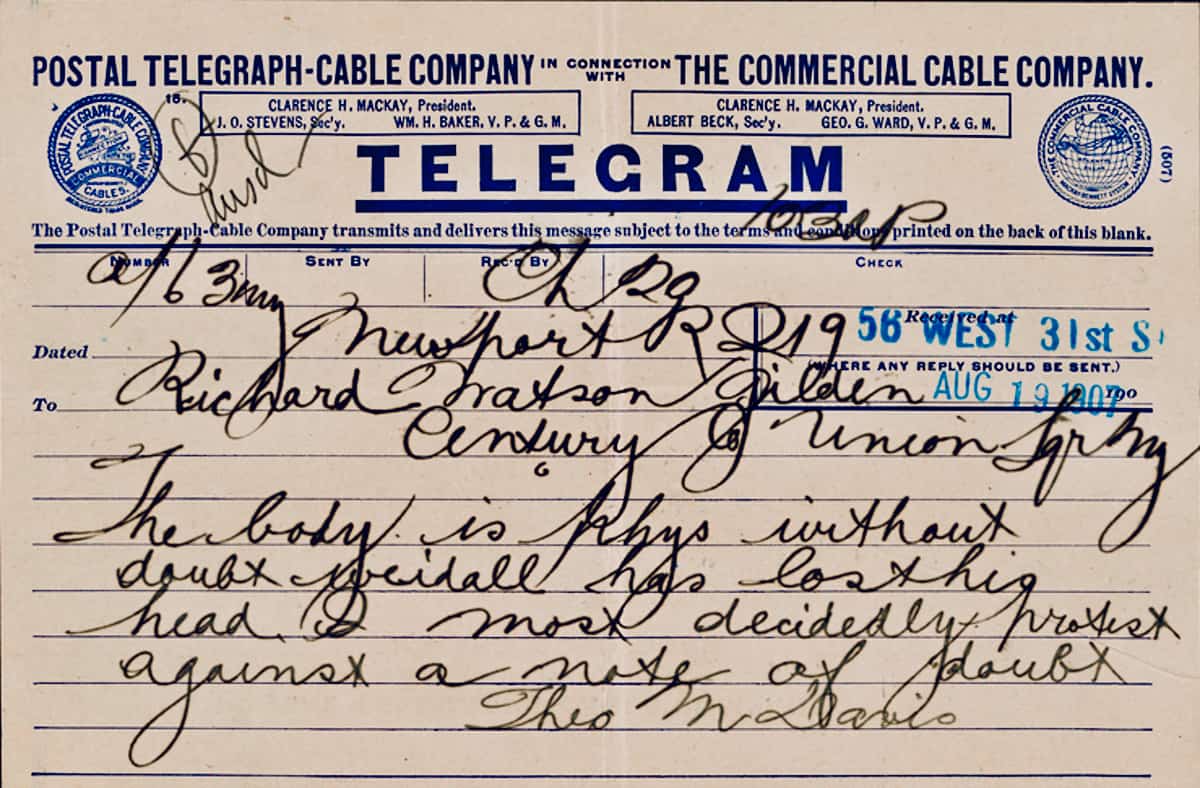 POSTAL TELEGRAPH-CABLE COMPANY IN CONNECTION WITH THE COMMERCIAL CABLE COMPANY.
CLARENCE H. MACKAY, President.
J. O. STEVENS, Sec'y. WM. H. BAKER, V. P. & G. M.
CLARENCE H. MACKAY, President.
ALBERT BECK, Sec'y. GEO. G. WARD, V. P. & G. M.
POSTAL TELEGRAPH-CABLE COMPANY
COMMERCIAL
CABLES.
THE COMMERCIAL CABLE COMPANY
MACKAY-BENNETT SYSTEM
(507)
16.
TELEGRAM
The Postal Telegraph-Cable Company transmits and delivers this message subject to the terms and conditions printed on the back of this blank.
NUMBER SENT BY REC'D BY CHECK
Ch
Received at
56 WEST 31st S
(WHERE ANY REPLY SHOULD BE SENT.)
AUG 19 1907 190
Dated Newport R I 19
To Richard Watson Gilden
Century Co Union Sqr Ny
The body is Khys without
doubt weidall has lost his
head. I most decidedly protest
against a note of doubt
Theo M Davis